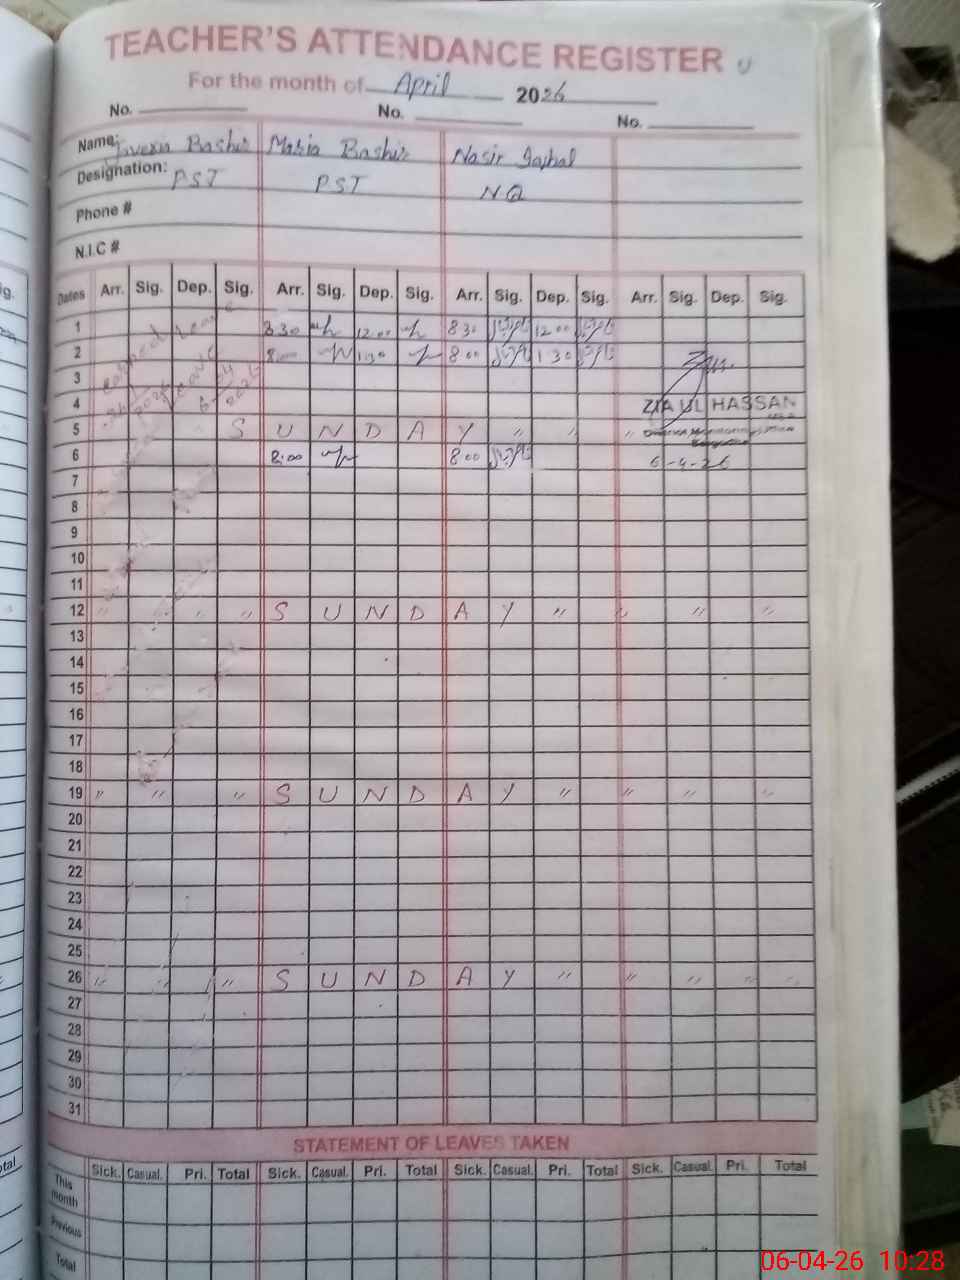 TEACHER'S ATTENDANCE REGISTER
For the month of April 2026
No. No. No.
Name: Javeria Bashir Maria Bashir Nasir Iqbal
Designation: PST PST NQ
Phone #
N.I.C #
Dates Arr. Sig. Dep. Sig. Arr. Sig. Dep. Sig. Arr. Sig. Dep. Sig. Arr. Sig. Dep. Sig.
1 8 30 12 00 8 30 12 00
2 8 00 1 30 8 00 1 30
3
4 ZIA UL HASSAN
5 S U N D A Y " " "
6 8:00 8 00 6-4-26
7
8
9
10
11
12 " " " S U N D A Y " " " "
13
14
15
16
17
18
19 " " " S U N D A Y " " " "
20
21
22
23
24
25
26 " " " S U N D A Y " " " "
27
28
29
30
31
STATEMENT OF LEAVES TAKEN
Sick. Casual. Pri. Total Sick. Casual. Pri. Total Sick. Casual. Pri. Total Sick. Casual. Pri. Total
This month
Previous
Total
06-04-26 10:28